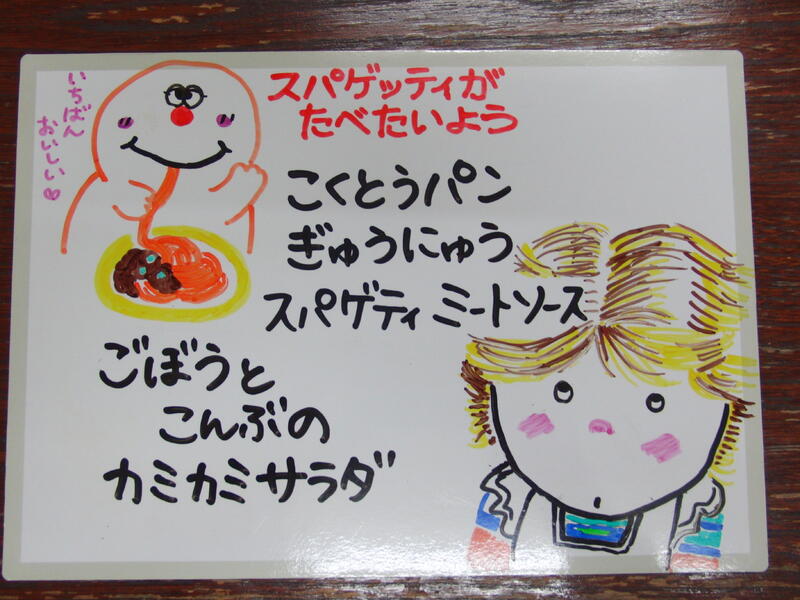 いちばん
おいしい♡
スパゲッティが
たべたいよう
こくとうパン
ぎゅうにゅう
スパゲティ ミートソース
ごぼうと
こんぶの
カミカミサラダ